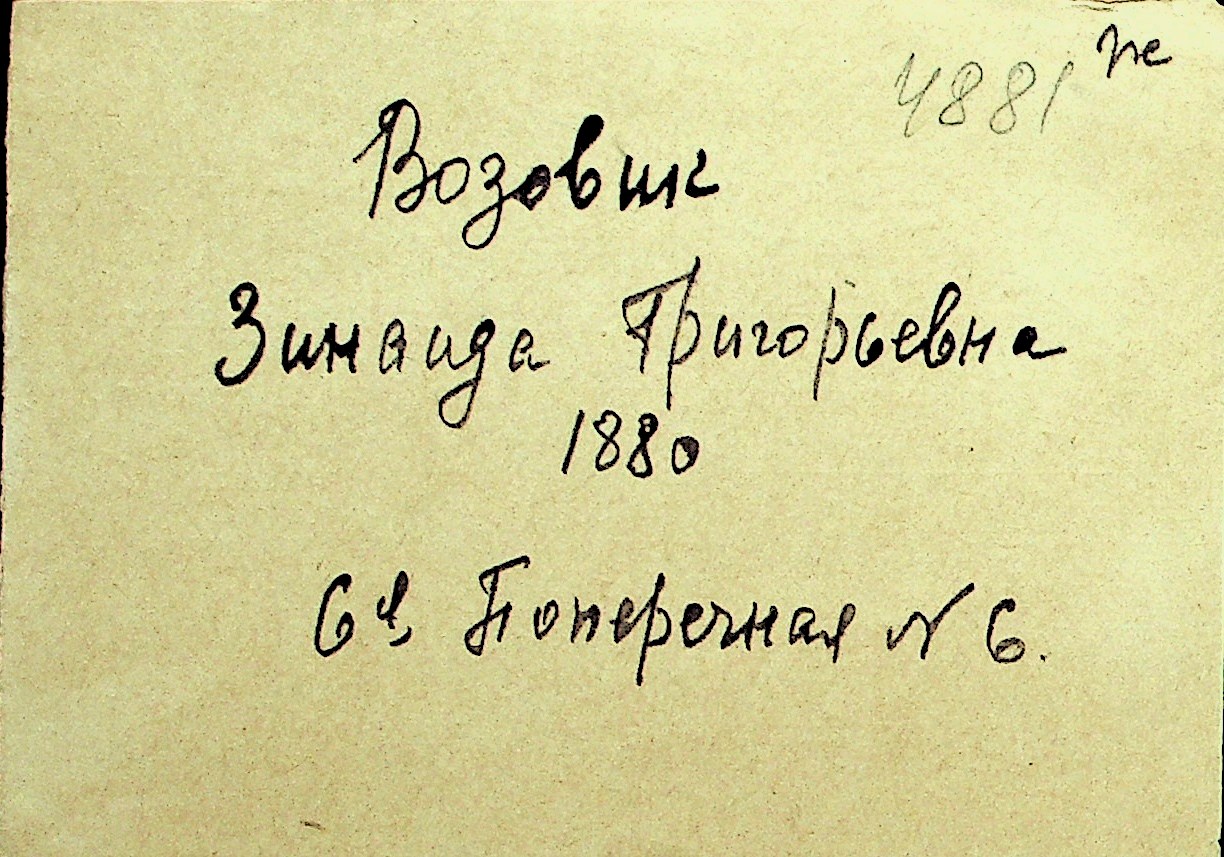 4881
Возовик
Зинаида Григорьевна
1880
6я Поперечная № 6.